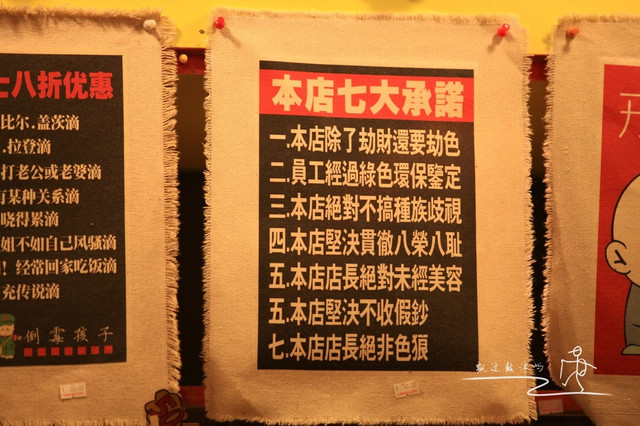 八折优惠
比尔.盖茨滴
.拉登滴
打老公或老婆滴
某种关系滴
晓得累滴
姐不如自己风骚滴
！经常回家吃饭滴
充传说滴
倒霉孩子
本店七大承諾
一.本店除了劫財還要劫色
二.員工經過綠色環保鑒定
三.本店絕對不搞種族歧視
四.本店堅決貫徹八榮八耻
五.本店店長絕對未經美容
五.本店堅決不收假鈔
七.本店店長絕非色狼